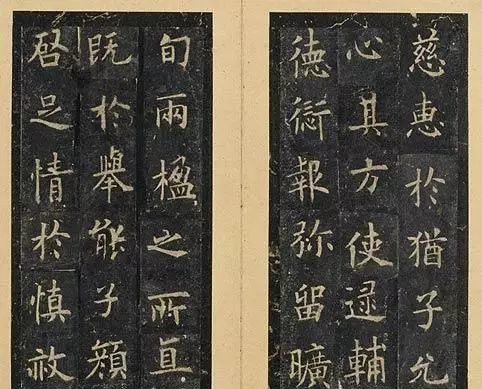 慈惠於猶子允
心其方使逯輔
徳衒報弥留曠
旬兩楹之所直
既於舉能子顔
啓足情於慎赦